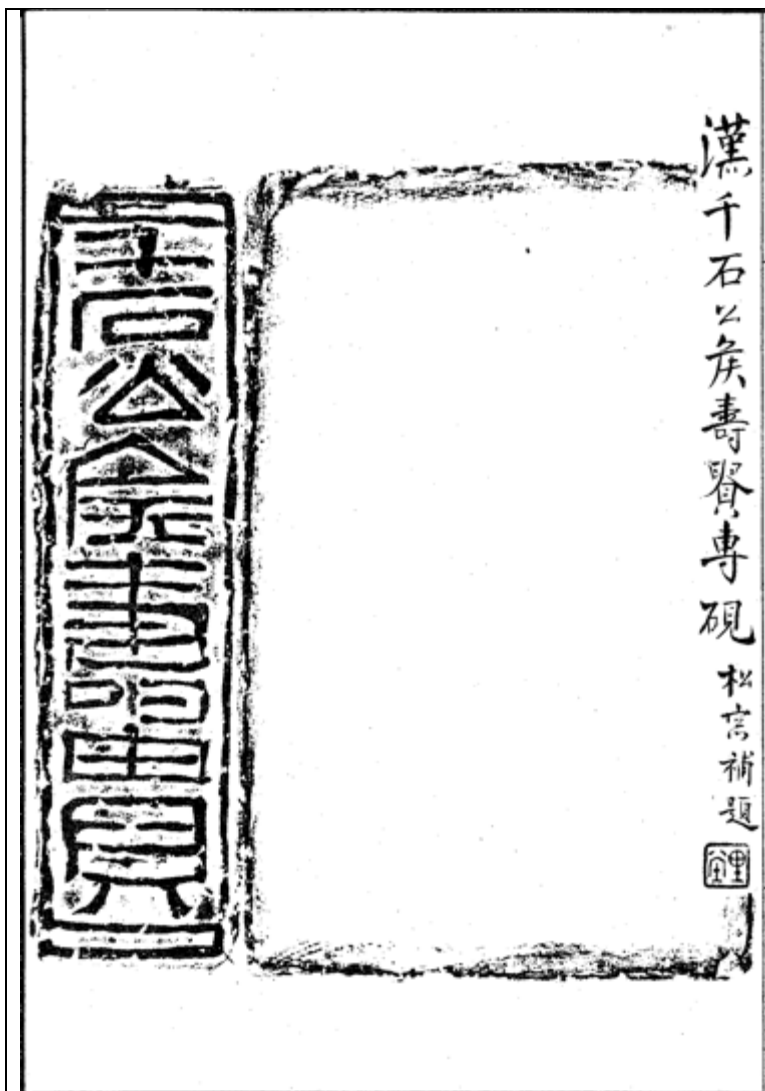 漢千石公矦壽貴專硯
松窗補題
千石公矦壽貴